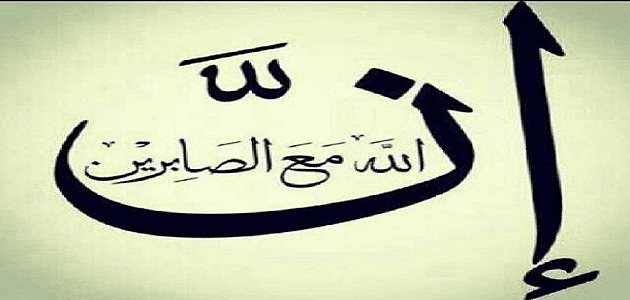 إنَّ
الله مَعَ الصَابِرِيْن